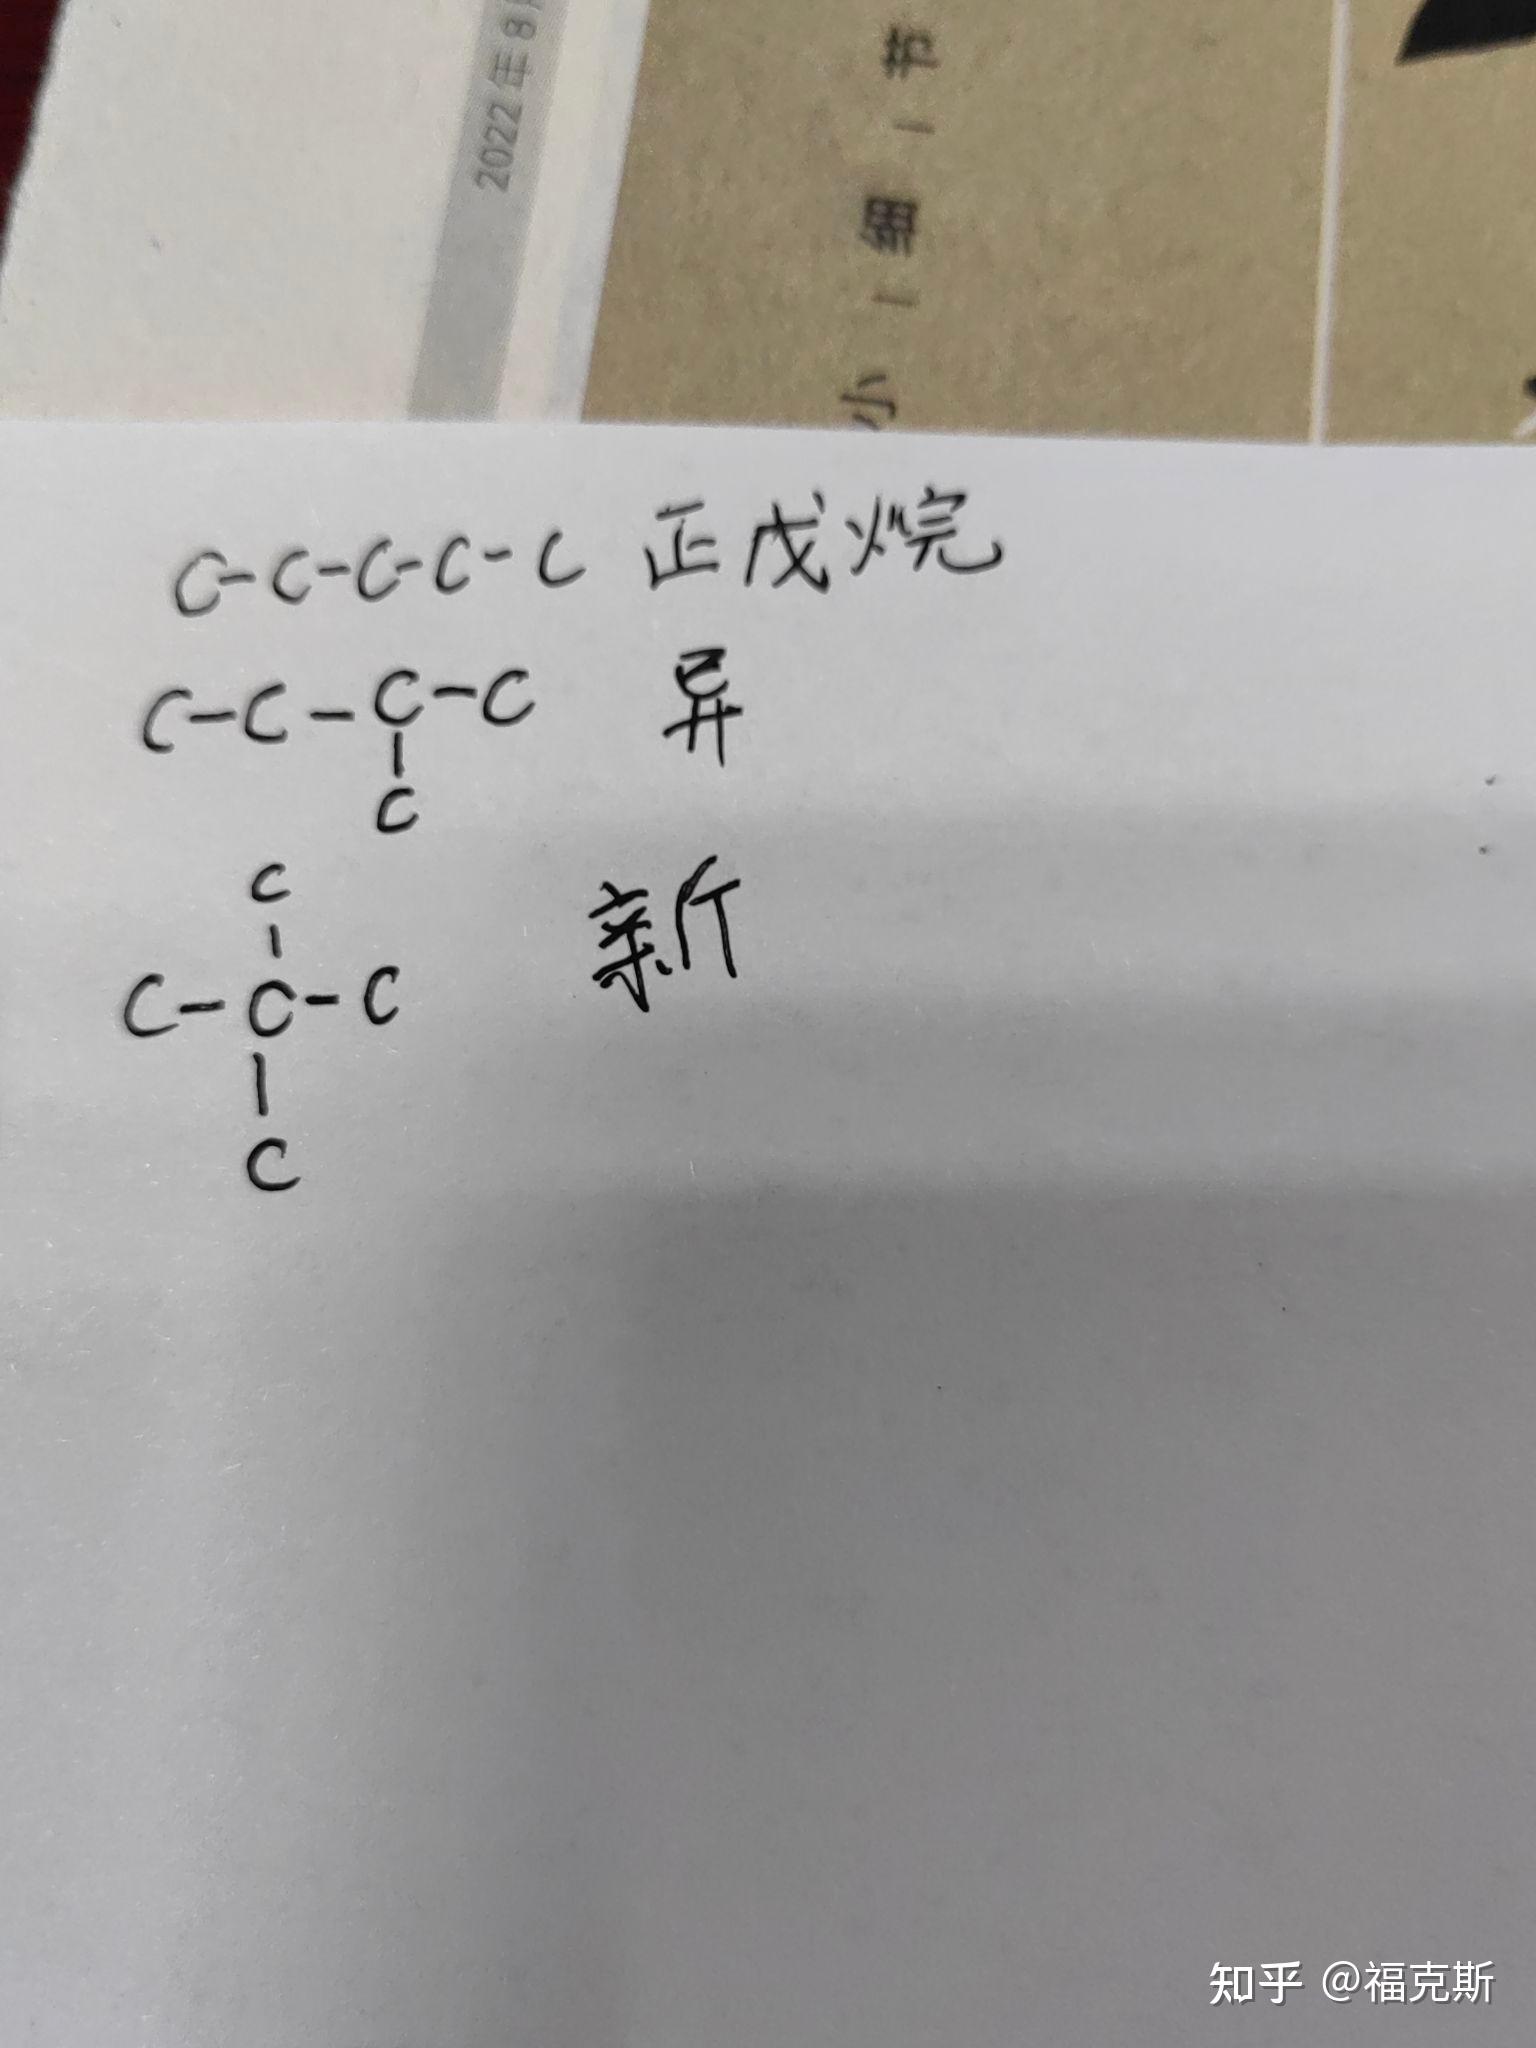 2022年8月
小|细|节
C-C-C-C-C 正戊烷
C-C-C-C 异
|
C
C
|
C-C-C 新
|
C
知乎 @福克斯